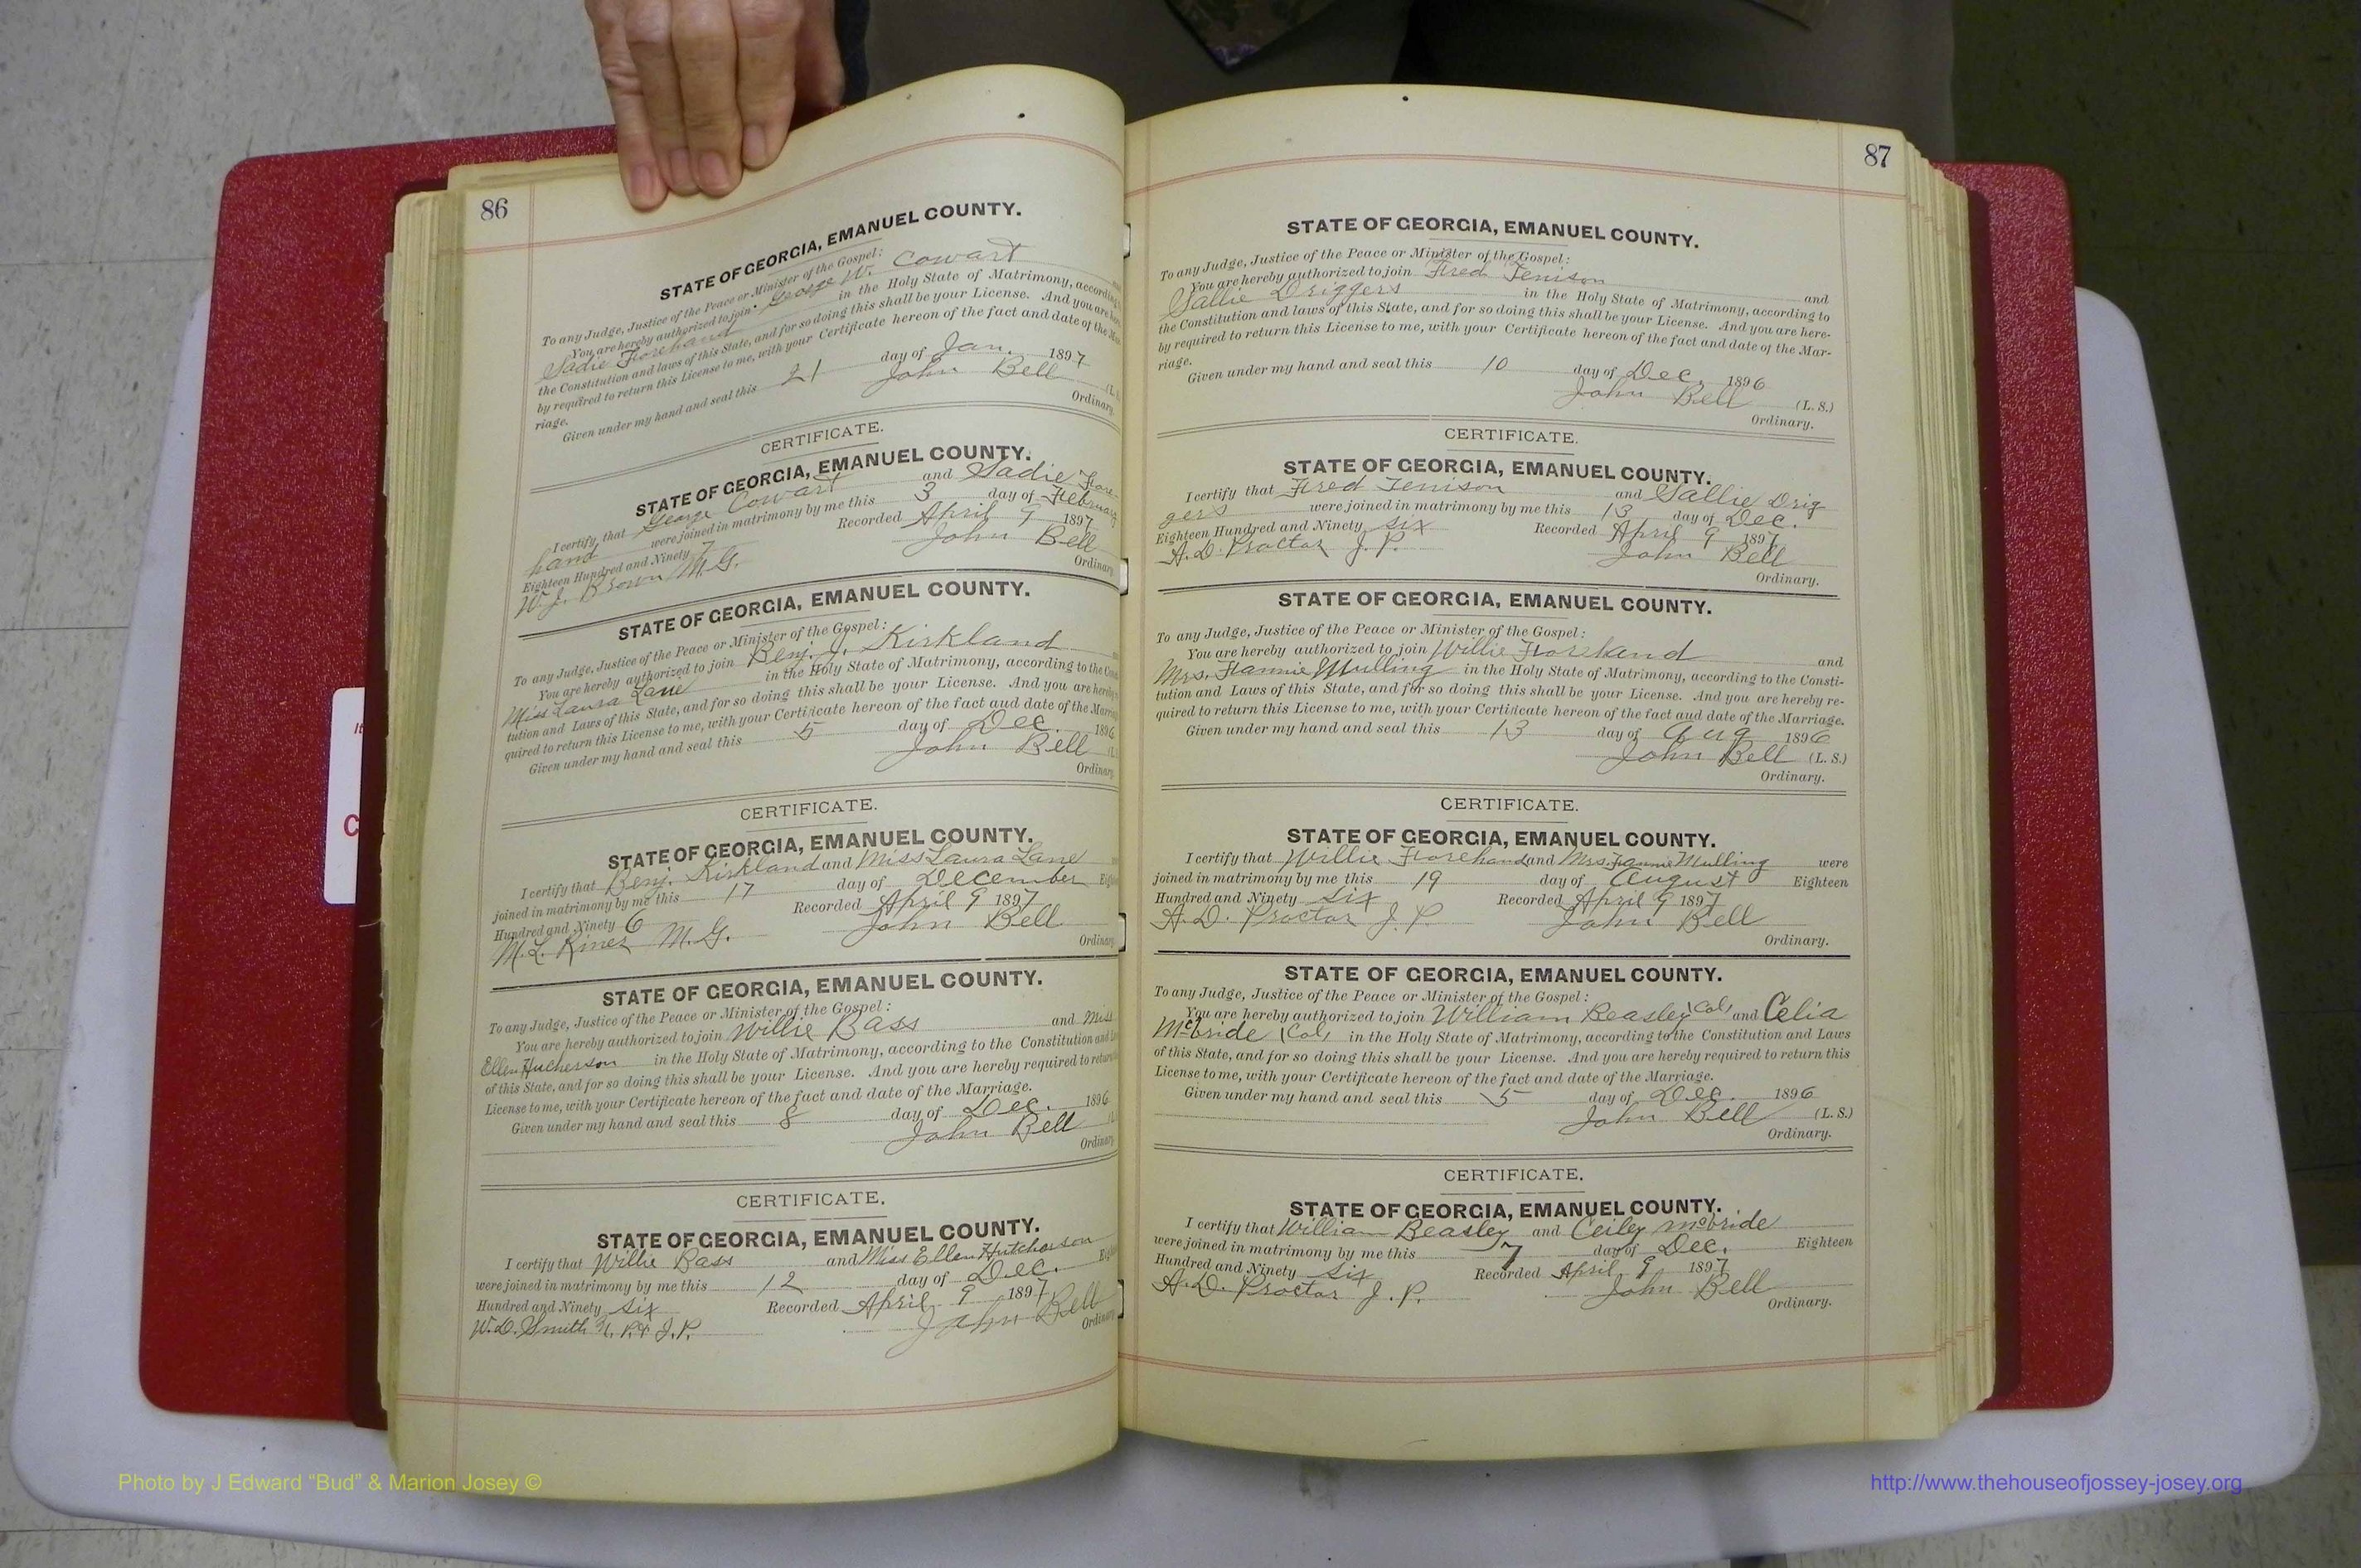 86
STATE OF GEORGIA, EMANUEL COUNTY.
To any Judge, Justice of the Peace or Minister of the Gospel:
You are hereby authorized to join George W. Cowart
Sadie Forehand in the Holy State of Matrimony, according
the Constitution and laws of this State, and for so doing this shall be your License. And you are here
by required to return this License to me, with your Certificate hereon of the fact and date of the Mar
riage.
Given under my hand and seal this 21 day of Jan. 1897
John Bell (L.
Ordinary.
CERTIFICATE.
STATE OF GEORGIA, EMANUEL COUNTY.
I certify that George Cowart and Sadie Fore-
hand were joined in matrimony by me this 3 day of February
Eighteen Hundred and Ninety 7 Recorded April 9 1897
W. J. Brown M. G. John Bell
Ordinary.
STATE OF GEORGIA, EMANUEL COUNTY.
To any Judge, Justice of the Peace or Minister of the Gospel:
You are hereby authorized to join Benj. J. Kirkland
Miss Laura Lane in the Holy State of Matrimony, according to the Consti
tution and Laws of this State, and for so doing this shall be your License. And you are hereby
quired to return this License to me, with your Certificate hereon of the fact aud date of the Marriage
Given under my hand and seal this 5 day of Dec. 1896
John Bell
Ordinary.
CERTIFICATE.
STATE OF GEORGIA, EMANUEL COUNTY.
I certify that Benj. Kirkland and Miss Laura Lane
joined in matrimony by me this 17 day of December Eigh
Hundred and Ninety 6 Recorded April 9 1897
M. L. Riner M. G. John Bell
Ordinary
STATE OF GEORGIA, EMANUEL COUNTY.
To any Judge, Justice of the Peace or Minister of the Gospel:
You are hereby authorized to join Willie Bass and Miss
Ellen Hucherson in the Holy State of Matrimony, according to the Constitution and
of this State, and for so doing this shall be your License. And you are hereby required to return
License to me, with your Certificate hereon of the fact and date of the Marriage.
Given under my hand and seal this 8 day of Dec. 1896
John Bell
Ordinary
CERTIFICATE.
STATE OF GEORGIA, EMANUEL COUNTY.
I certify that Willie Bass and Miss Ellen Hutcherson
were joined in matrimony by me this 12 day of Dec. Eigh
Hundred and Ninety six Recorded April 9 1897
W. D. Smith N. P. & J. P. John Bell
Ordinary
87
STATE OF GEORGIA, EMANUEL COUNTY.
To any Judge, Justice of the Peace or Minister of the Gospel:
You are hereby authorized to join Fred Tenison and
Sallie Driggers in the Holy State of Matrimony, according to
the Constitution and laws of this State, and for so doing this shall be your License. And you are here-
by required to return this License to me, with your Certificate hereon of the fact and date of the Mar-
riage.
Given under my hand and seal this 10 day of Dec. 1896
John Bell (L. S.)
Ordinary.
CERTIFICATE.
STATE OF GEORGIA, EMANUEL COUNTY.
I certify that Fred Tenison and Sallie Drig
gers were joined in matrimony by me this 13 day of Dec.
Eighteen Hundred and Ninety six Recorded April 9 1897
A. D. Proctor J. P. John Bell
Ordinary.
STATE OF GEORGIA, EMANUEL COUNTY.
To any Judge, Justice of the Peace or Minister of the Gospel:
You are hereby authorized to join Willie Forehand and
Mrs. Fannie Mulling in the Holy State of Matrimony, according to the Consti-
tution and Laws of this State, and for so doing this shall be your License. And you are hereby re-
quired to return this License to me, with your Certificate hereon of the fact aud date of the Marriage.
Given under my hand and seal this 13 day of Aug 1896
John Bell (L. S.)
Ordinary.
CERTIFICATE.
STATE OF GEORGIA, EMANUEL COUNTY.
I certify that Willie Forehand and Mrs. Fannie Mulling were
joined in matrimony by me this 19 day of August Eighteen
Hundred and Ninety Six Recorded April 9 1897
A. D. Proctor J. P. John Bell
Ordinary.
STATE OF GEORGIA, EMANUEL COUNTY.
To any Judge, Justice of the Peace or Minister of the Gospel:
You are hereby authorized to join William Beasley (Col) and Celia
McBride (Col) in the Holy State of Matrimony, according to the Constitution and Laws
of this State, and for so doing this shall be your License. And you are hereby required to return this
License to me, with your Certificate hereon of the fact and date of the Marriage.
Given under my hand and seal this 5 day of Dec. 1896
John Bell (L. S.)
Ordinary.
CERTIFICATE.
STATE OF GEORGIA, EMANUEL COUNTY.
I certify that William Beasley and Ceiley McBride
were joined in matrimony by me this 7 day of Dec. Eighteen
Hundred and Ninety Six Recorded April 9 1897
A. D. Proctor J. P. John Bell
Ordinary.
Photo by J Edward “Bud” & Marion Josey ©
http://www.thehouseofjossey-josey.org